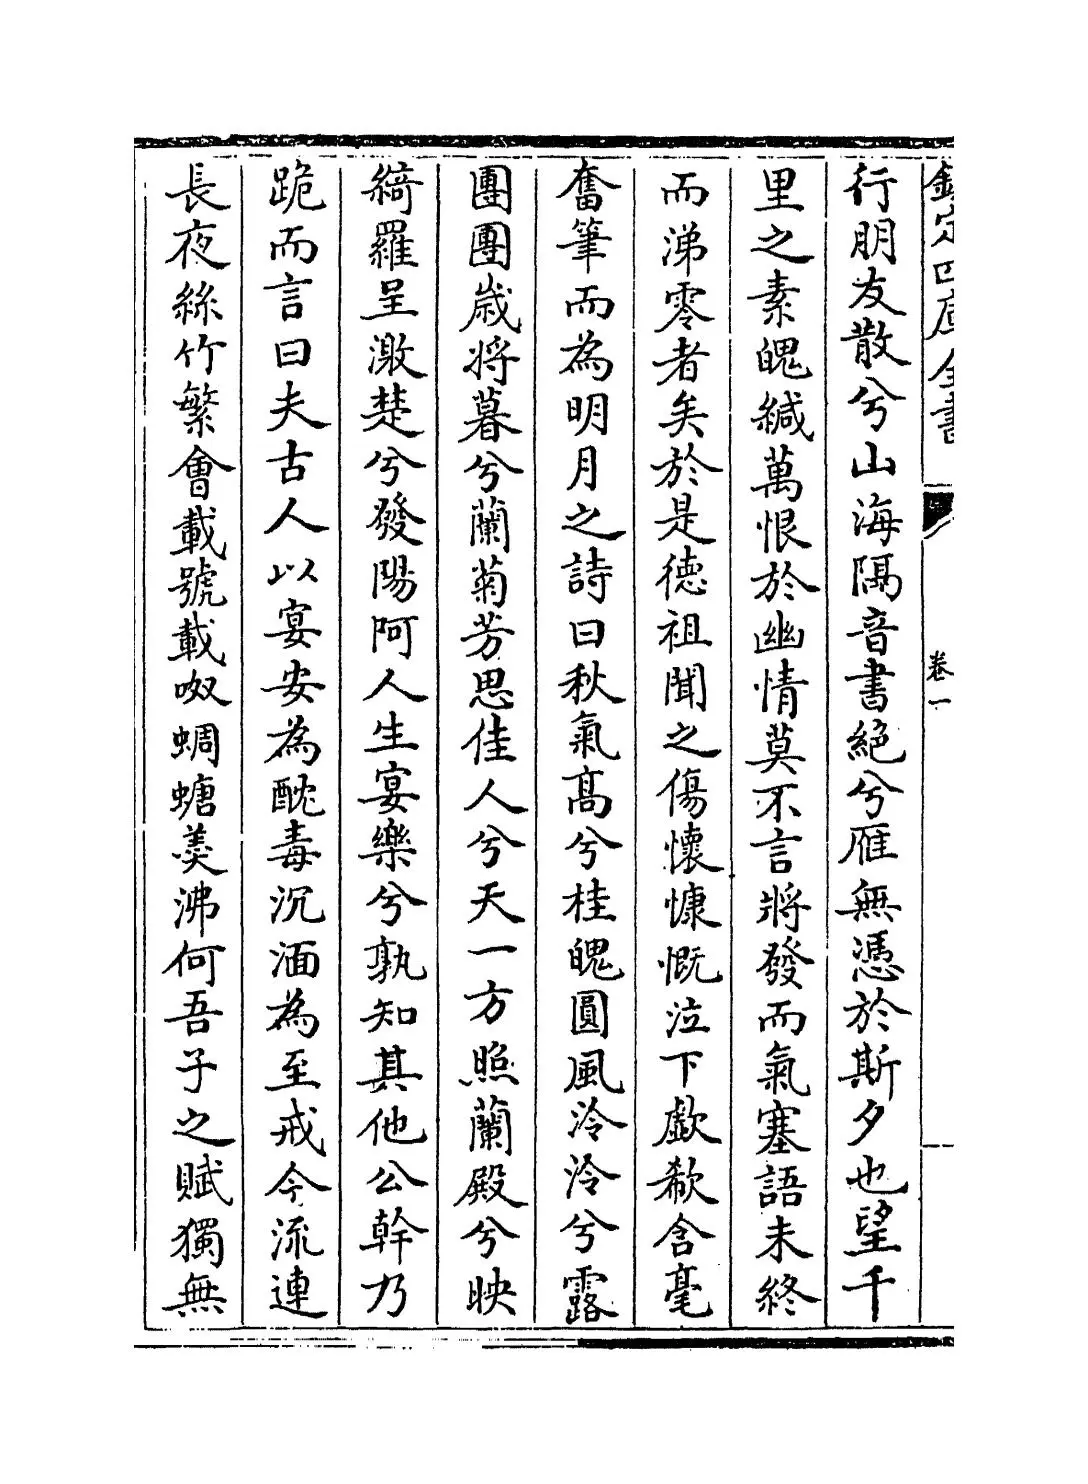 欽定四庫全書
卷一
行朋友散兮山海隔音書絶兮雁無憑於斯夕也望千
里之素魄緘萬恨於幽情莫不言將發而氣塞語未終
而涕零者矣於是德祖聞之傷懷慷慨泣下歔欷含毫
奮筆而為明月之詩曰秋氣髙兮桂魄圓風泠泠兮露
團團歲將暮兮蘭菊芳思佳人兮天一方照蘭殿兮映
綺羅呈激楚兮發陽阿人生宴樂兮孰知其他公幹乃
跪而言曰夫古人以宴安為酖毒沉湎為至戒今流連
長夜絲竹繁會載號載呶蜩螗羹沸何吾子之賦獨無